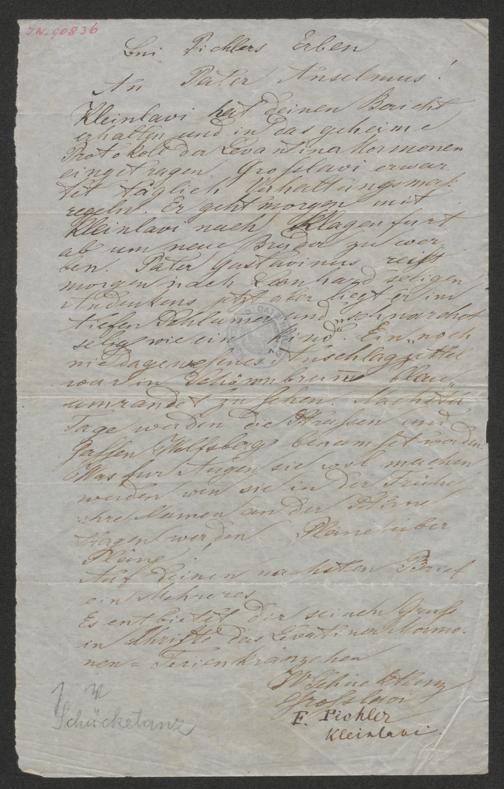 IN. 90836
bei Pichlers Erben
An Pater Anselmus!
Kleinlavi hat deinen Bericht
erhalten und in das geheime
Protokoll der Levantinermormonen
eingetragen. Grosslavi erwar
tet täglich Verhaltungsmaß
regeln. Er geht morgen mit
Kleinlavi nach Klagenfurt
ab um neue Brüder zu wer
ben. Pater Gastavinus reist
morgen nach Leonhard seligen
Andenkens jetzt aber liegt er im
tiefen Schlummer und schnarcht
selig wie ein Kind. Ein noch
nie dagewesener Anschlagzettel
war in Schönnbrunn blau
umrandet zu sehen.
Sage werden die Strassen und
Gassen Wolfsbergs benamset werden
Was für Augen sie wol machen
werden wen sie in der Frühe
ihre Namen an der Stirne
tragen werden Pläne über
Pläne!
Auf deinen nächsten Brief
ein Mehreres
Es entbietet dir seinen Gruß
in das Levantiner Mormo
nen = Ferienkränzchen
Grosslavi
F. Pichler
Kleinlavi.
Schücketanz